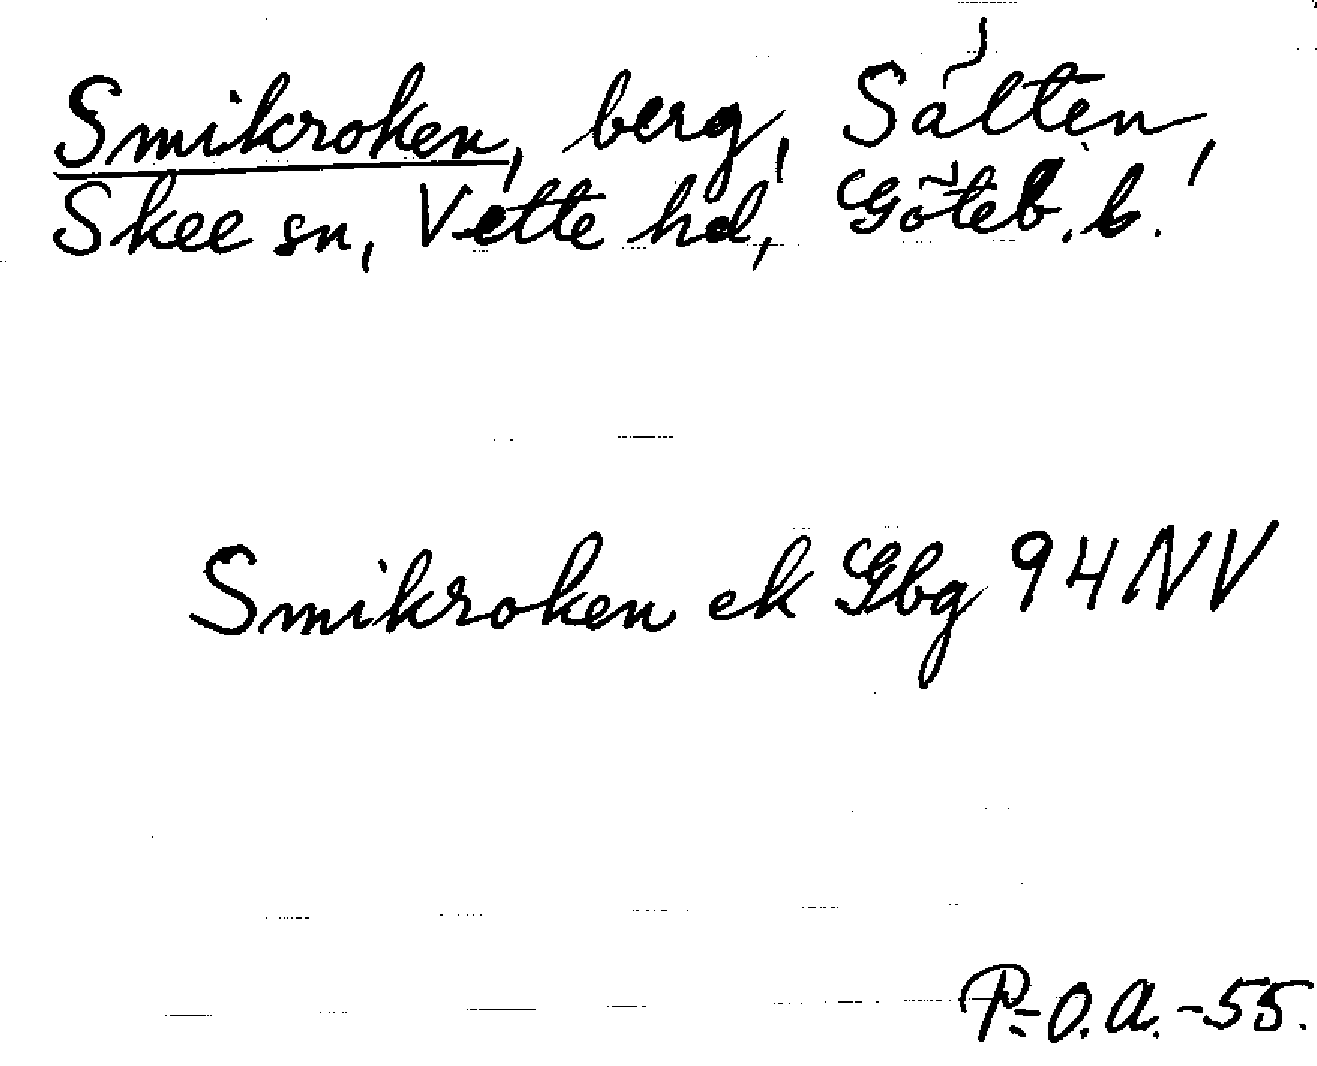 Smikroken, berg, Sälten,
Skee sn, Vette hd, Göteb. b.
Smikroken ek Gbg 94 NV
P-O.A.-55.